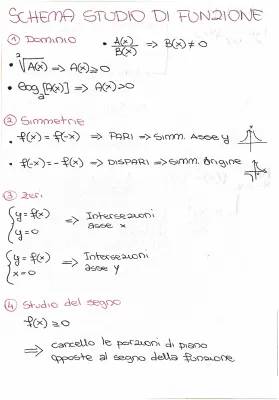 SCHEMA STUDIO DI FUNZIONE
① Dominio • A(x)/B(x) => B(x) ≠ 0
• ²√A(x) => A(x) ≥ 0
• log_a [A(x)] => A(x) > 0
② Simmetrie
• f(x) = f(-x) => PARI => Simm. Asse y
• f(-x) = - f(x) => DISPARI => Simm. Origine
③ Zeri
{ y = f(x)
y = 0 => Intersezioni asse x
{ y = f(x)
x = 0 => Intersezioni asse y
④ Studio del segno
f(x) ≥ 0
=> cancello le porzioni di piano
opposte al segno della funzione